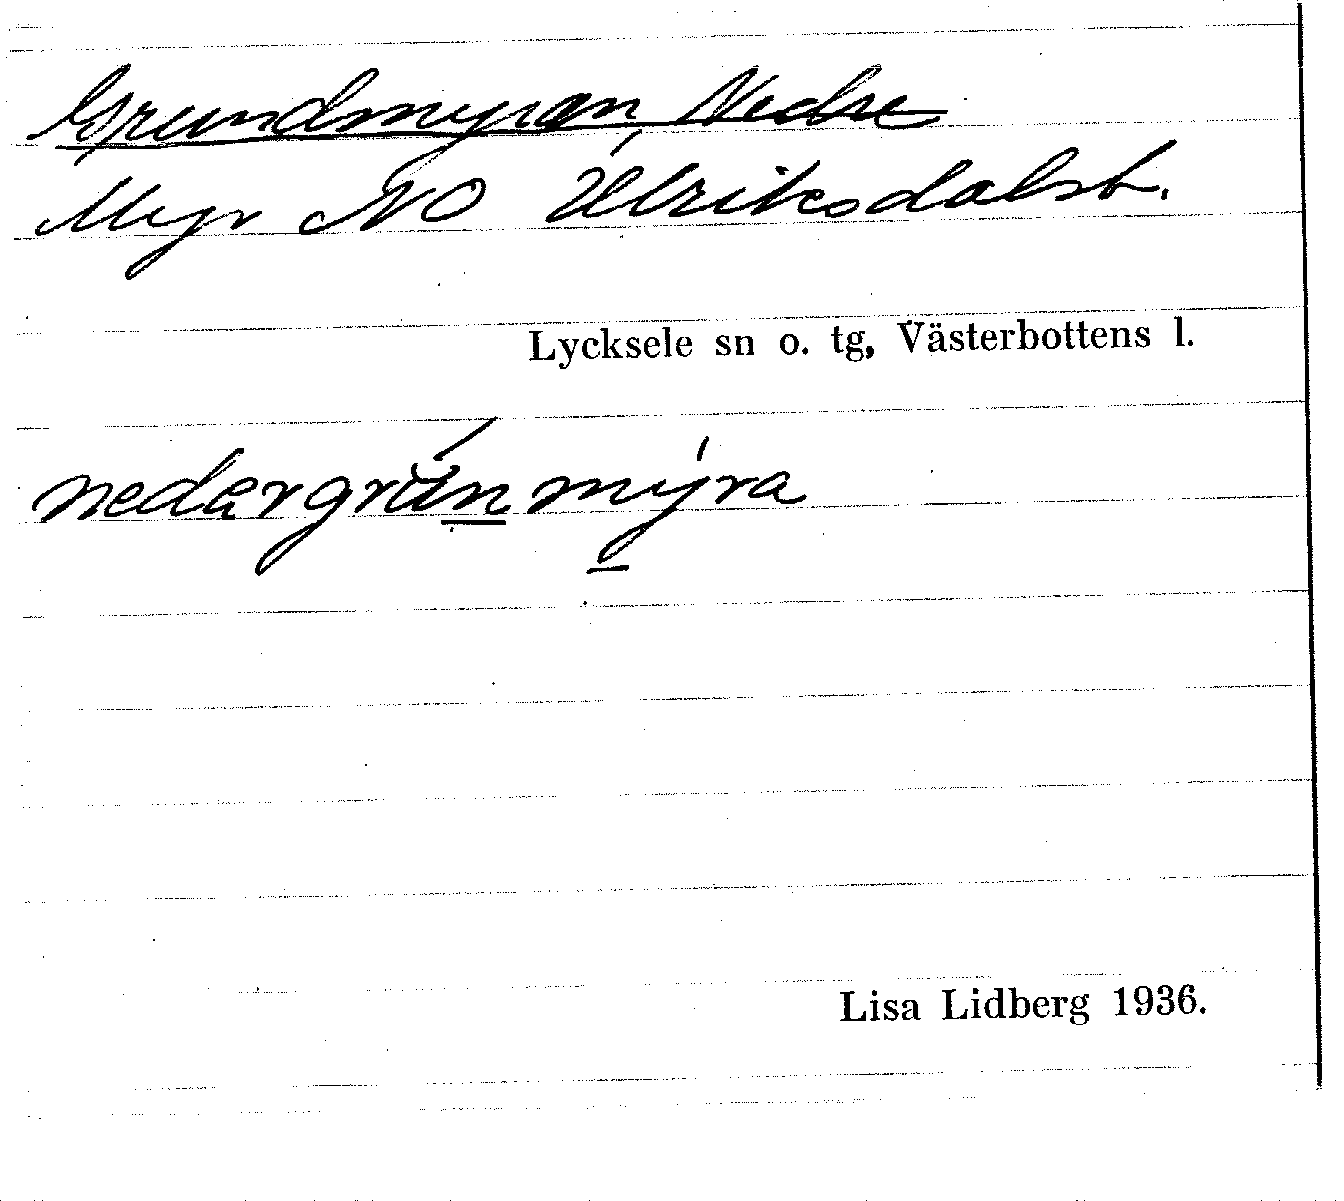 Grundmyran, Nedre
Myr NO Ulriksdalsb.
Lycksele sn o. tg, Västerbottens l.
nedergrunmyra
Lisa Lidberg 1936.